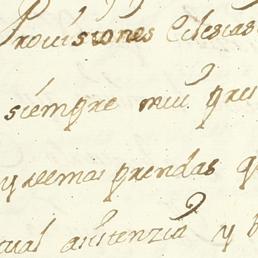 Provisiones Eclesias
siempre mui gra
y demas prendas q
tual asistenzia y b